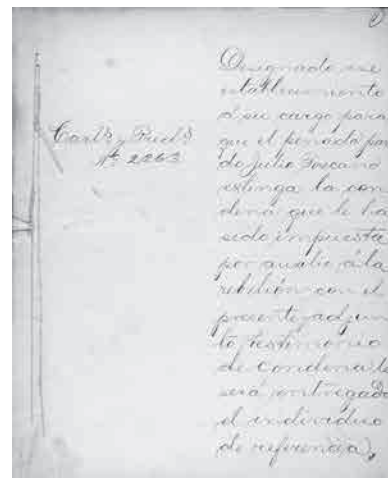 Designado ese
establecimiento
á su cargo para
Carls y Presls
Nº 2263
que el penado par
do Julio Toscano
extinga la con
dena que le ha
sido impuesta
por auxilio á la
rebelión con el
presente adjun
to testimonio
de condena le
será entregado
el individuo
de referencia,